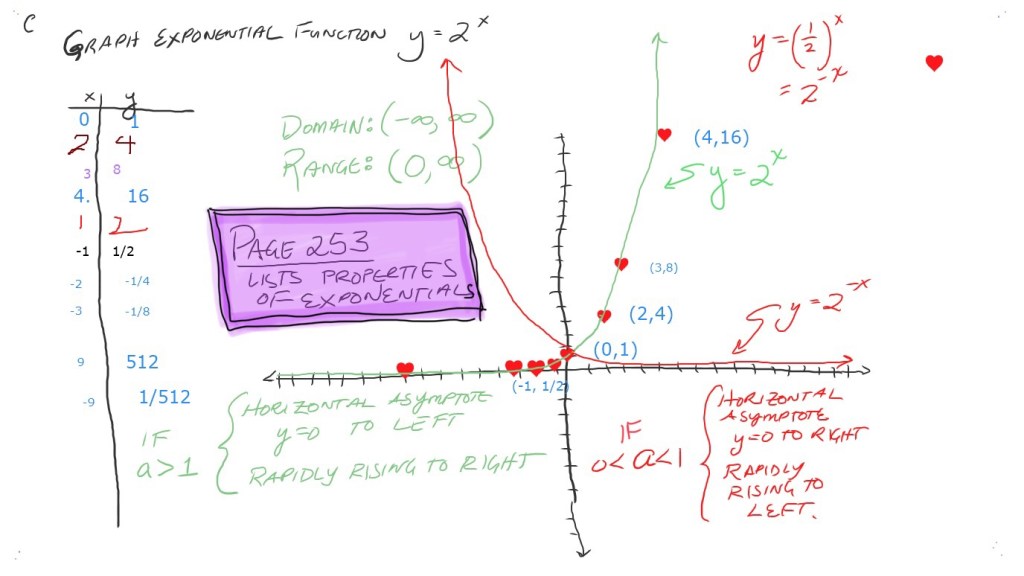 C
GRAPH EXPONENTIAL FUNCTION y = 2^x
y = (1/2)^x
= 2^-x
x y
0 1
2 4
3 8
4. 16
1 2
-1 1/2
-2 -1/4
-3 -1/8
9 512
-9 1/512
DOMAIN: (-∞, ∞)
RANGE: (0, ∞)
PAGE 253
LISTS PROPERTIES
OF EXPONENTIALS
(4,16)
y = 2^x
(3,8)
(2,4)
(0,1)
(-1, 1/2)
y = 2^-x
IF
a > 1
HORIZONTAL ASYMPTOTE
y=0 TO LEFT
RAPIDLY RISING TO RIGHT
IF
0 < a < 1
HORIZONTAL
ASYMPTOTE
y=0 TO RIGHT
RAPIDLY
RISING TO
LEFT.